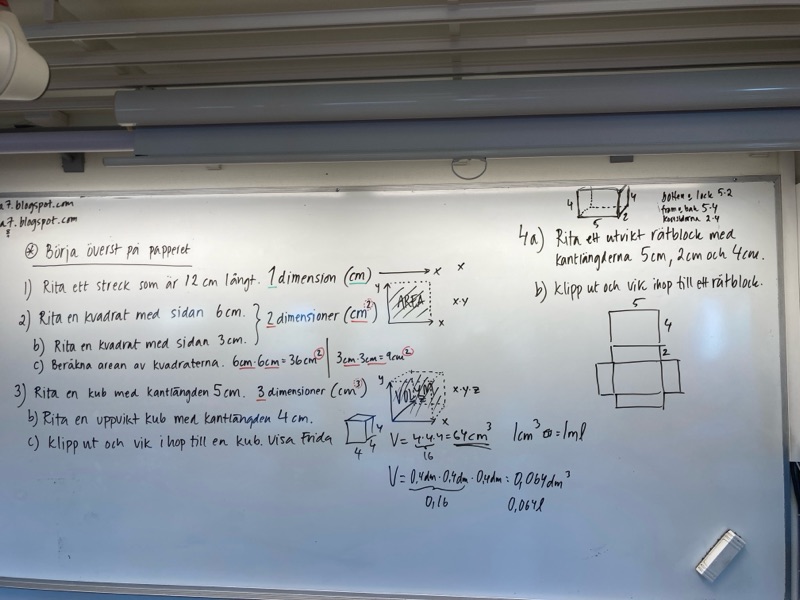 a7.blogspot.com
a7.blogspot.com
Börja överst på papperet
1) Rita ett streck som är 12 cm långt. 1 dimension (cm) x x
2) Rita en kvadrat med sidan 6 cm. 2 dimensioner (cm²) y AREA x x·y
b) Rita en kvadrat med sidan 3 cm.
c) Beräkna arean av kvadraterna. 6cm·6cm=36cm² 3cm·3cm=9cm²
3) Rita en kub med kantlängden 5 cm. 3 dimensioner (cm³) y VOLYM z x x·y·z
b) Rita en uppvikt kub med kantlängden 4 cm. 4 4 4
c) Klipp ut och vik ihop till en kub. Visa Frida
V = 4·4·4 = 64cm³ 1cm³ = 1ml
16
V = 0,4dm·0,4dm·0,4dm = 0,064dm³
0,16 0,064l
4 5 2 4
botten o lock 5·2
fram o bak 5·4
kortsidorna 2·4
4a) Rita ett utvikt rätblock med
kantlängderna 5cm, 2cm och 4cm.
b) Klipp ut och vik ihop till ett rätblock.
5
4
2